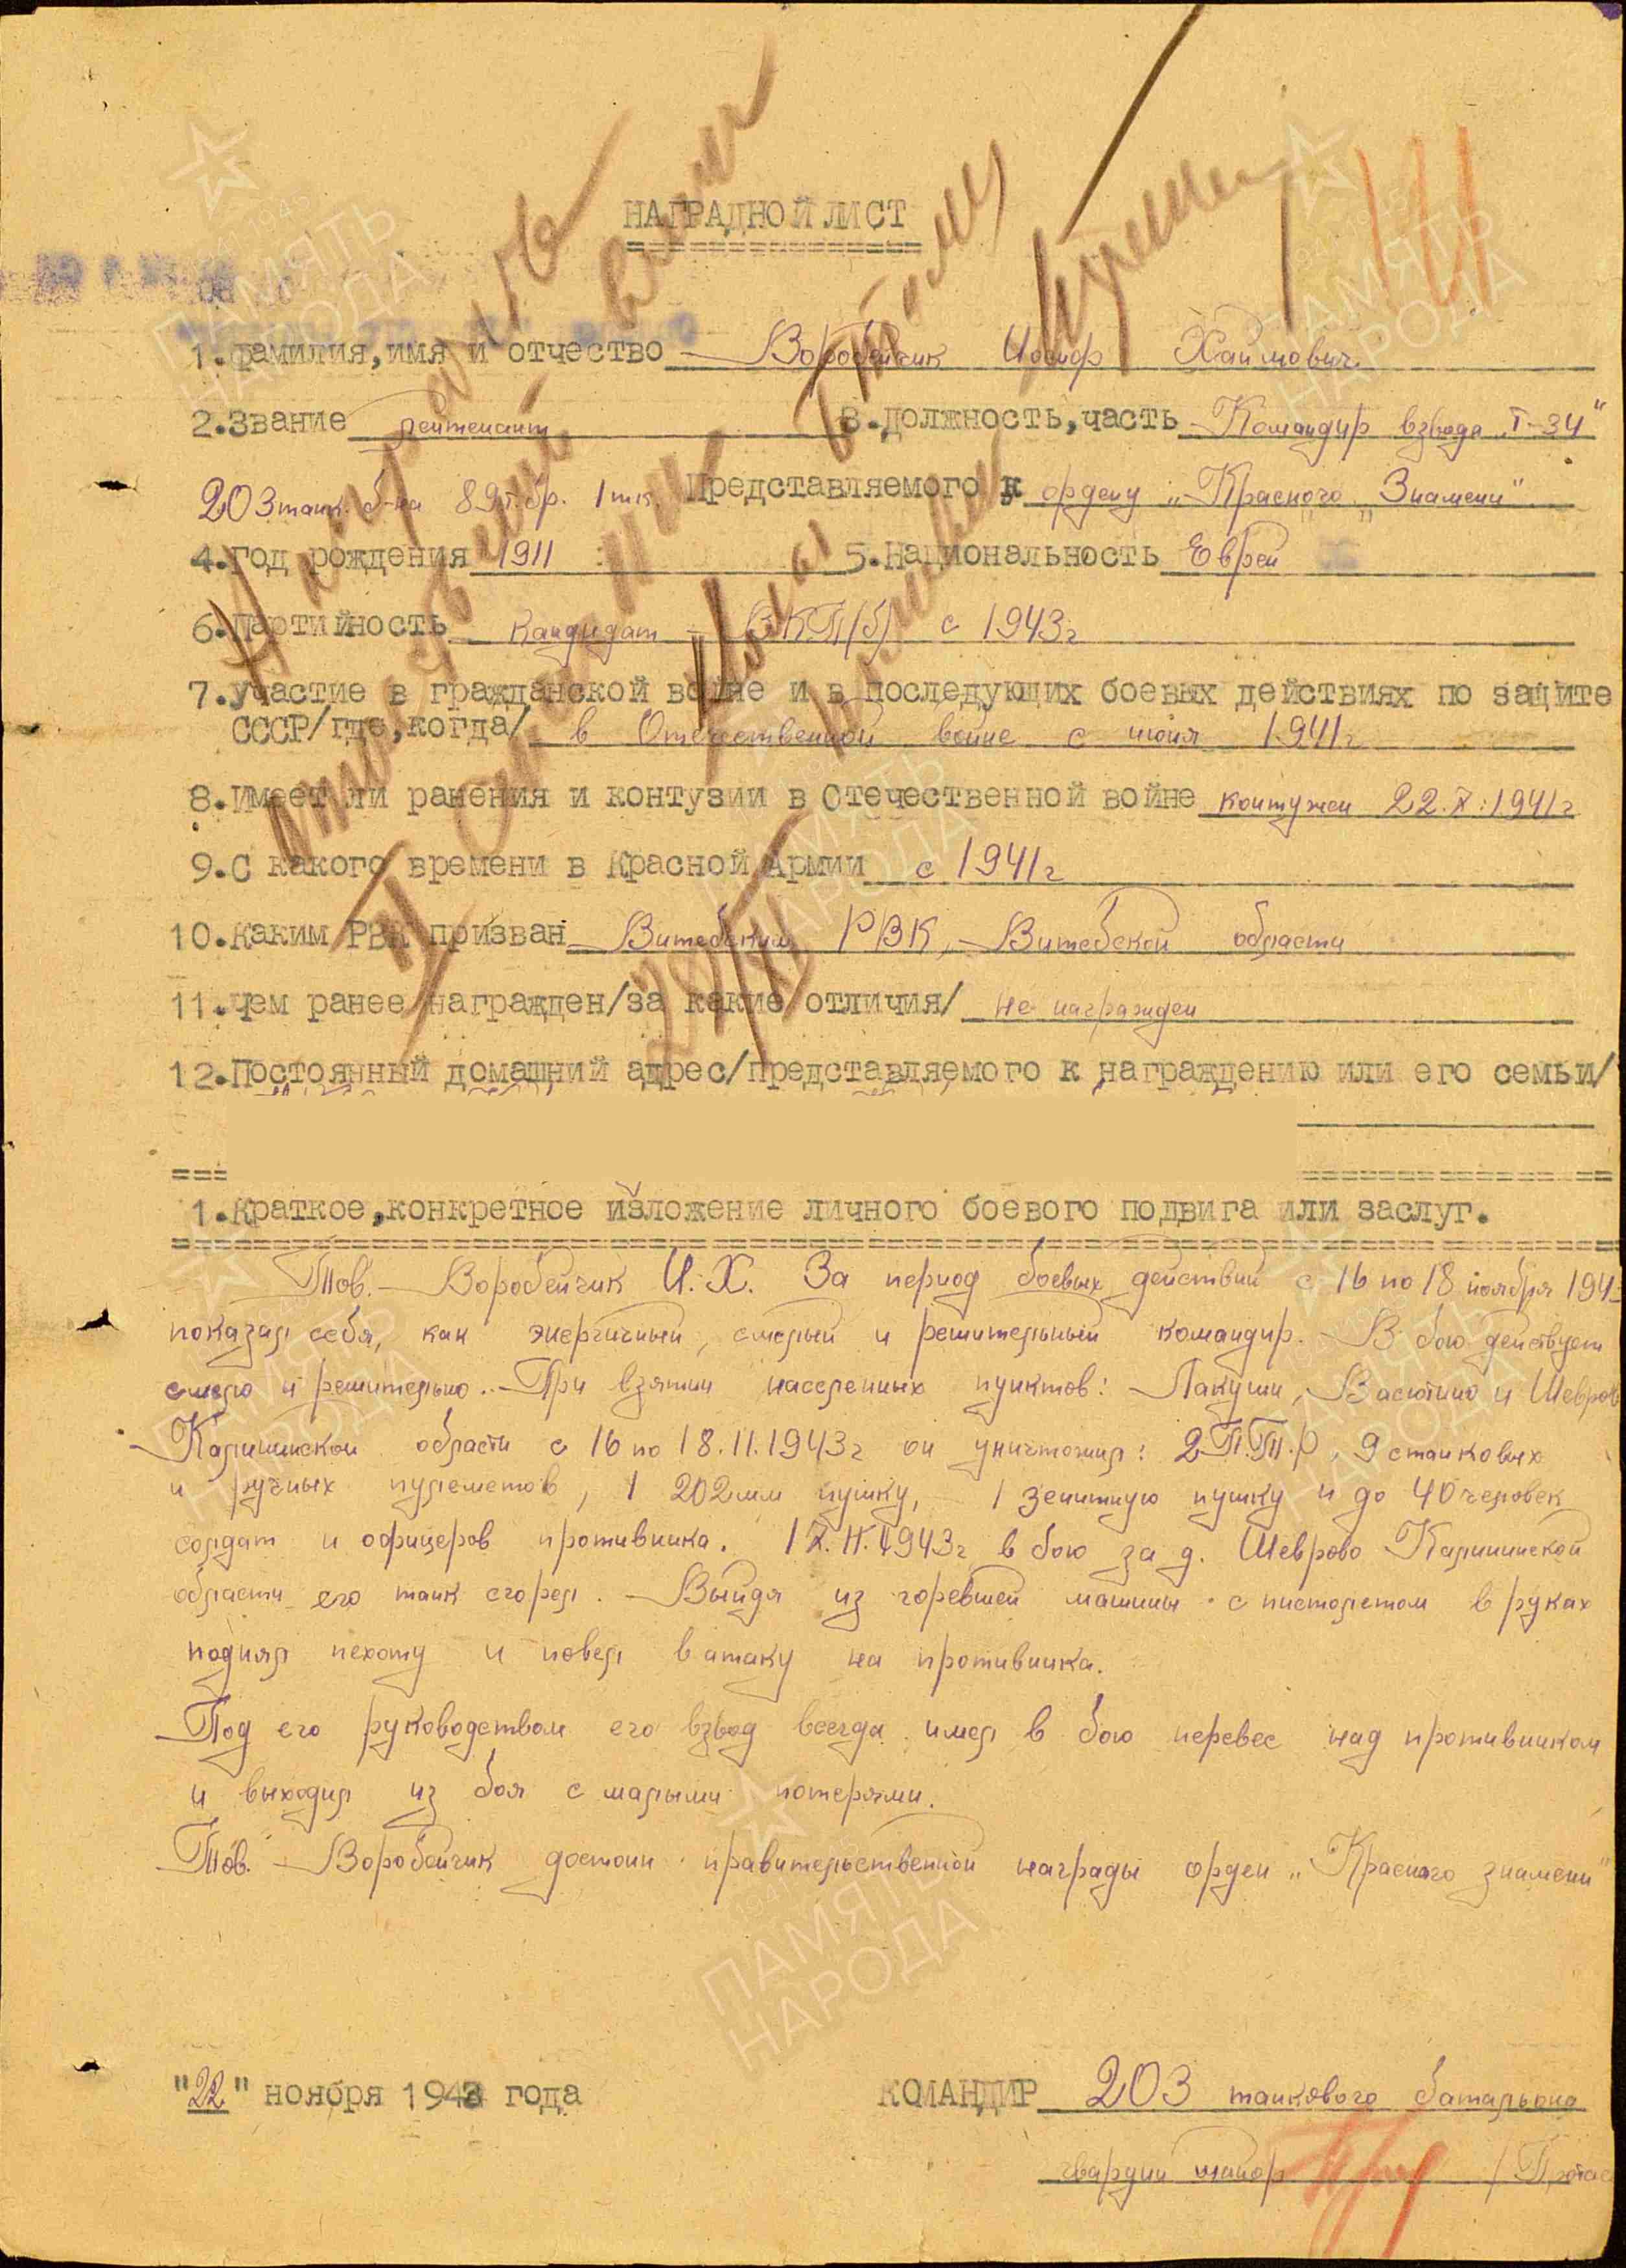 НАГРАДНОЙ ЛИСТ
1.Фамилия,имя и отчество Воробейчик Иосиф Хаимович
2.Звание лейтенант 3.Должность,часть Командир взвода „Т-34"
203 танк. б-на 89т.бр. 1тк. Представляемого к ордену „Красного Знамени"
4.Год рождения 1911 5.Национальность Еврей
6.Партийность Кандидат ВКП(б) с 1943г
7.Участие в гражданской войне и в последующих боевых действиях по защите
СССР/где,когда/ в Отечественной войне с июня 1941г
8.Имеет ли ранения и контузии в Отечественной войне контужен 22.X.1941г
9.С какого времени в Красной Армии с 1941г
10.Каким РВК призван Витебским РВК, Витебской области
11.Чем ранее награжден/за какие отличия/ не награжден
12.Постоянный домашний адрес/представляемого к награждению или его семьи/
1.Краткое,конкретное изложение личного боевого подвига или заслуг.
Тов. Воробейчик И.Х. За период боевых действий с 16 по 18 ноября 194
показал себя, как энергичный, смелый и решительный командир. В бою действует
смело и решительно. При взятии населенных пунктов: Лакуши, Васютино и Шеврово
Калининской области с 16 по 18.11.1943г он уничтожил: 2 П.Т.Р, 9 станковых
и ручных пулеметов, 1 202мм пушку, 1 зенитную пушку и до 40 человек
солдат и офицеров противника. 17.11.1943г в бою за д. Шеврово Калининской
области его танк сгорел. Выйдя из горевшей машины с пистолетом в руках
поднял пехоту и повел в атаку на противника.
Под его руководством его взвод всегда имел в бою перевес над противником
и выходил из боя с малыми потерями.
Тов. Воробейчик достоин правительственной награды орден „Красного знамени"
"22" ноября 1943 года КОМАНДИР 203 танкового батальона
гвардии майор
ПАМЯТЬ
НАРОДА